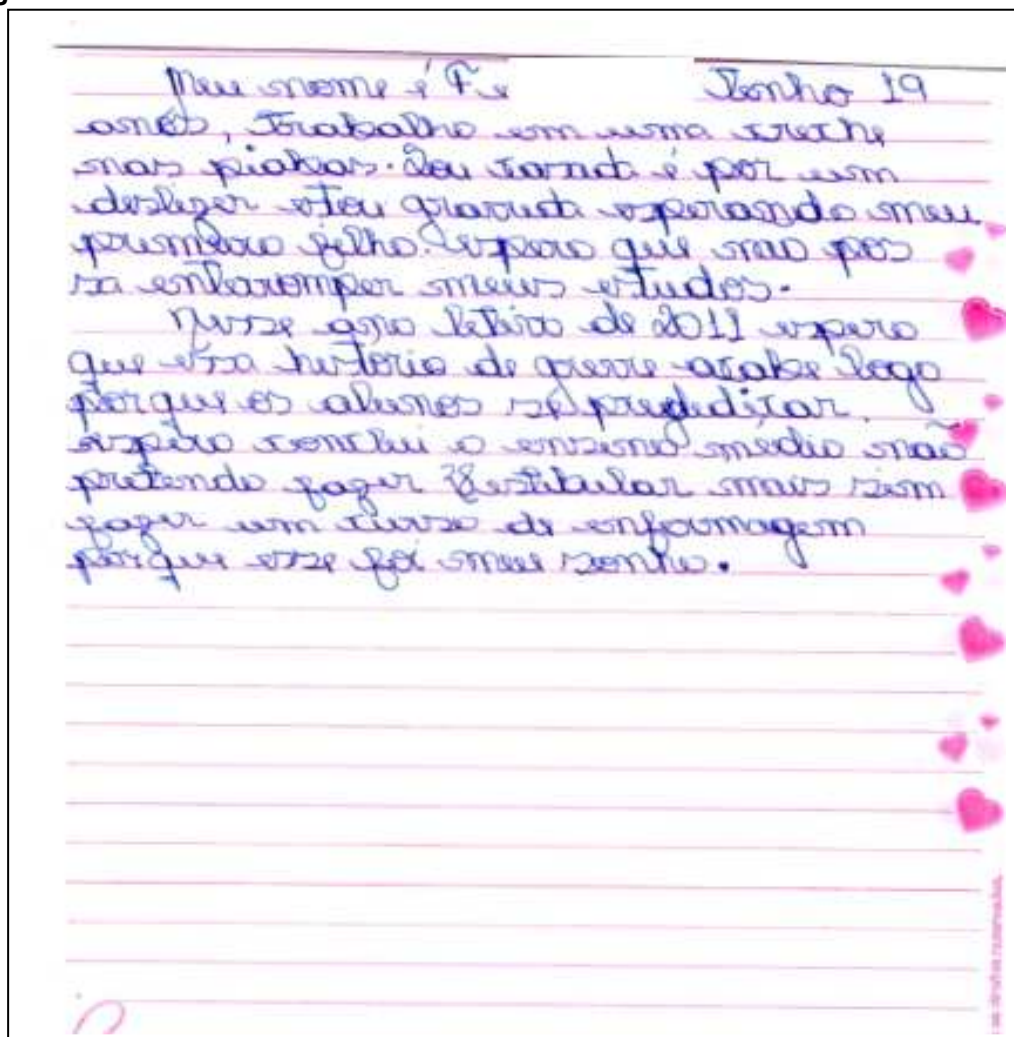 Meu nome é Fe Tenho 19
anos, Trabalho em uma creche
nas piabas. Sou casada é por um
deslizer estou gravida esperando meu
primeiro filho. espero que não pos
sa enterromper meus estudos.
Nesse ano letivo de 2011 espero
que essa historia de greve acabe logo
porque os alunos se prejedicar.
espero conclui o ensino médio não
pretendo fazer Vestibular mais sim
fazer um curso de enformagem
porque esse foi meu sonho.